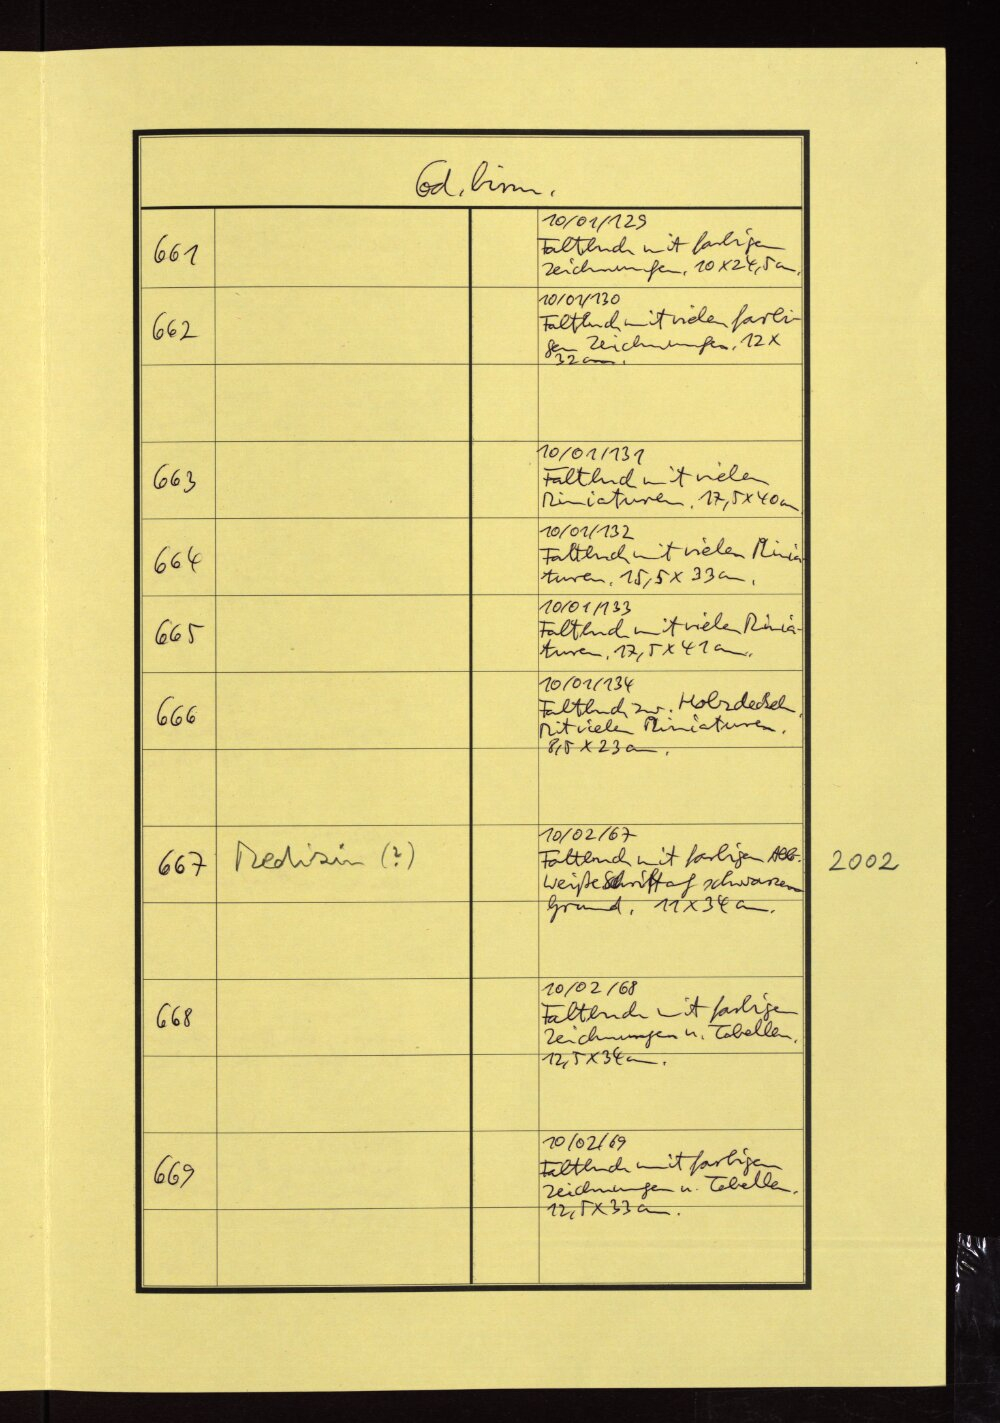 Cod. birm.
661
10/01/129
Faltbuch mit farbigen
Zeichnungen. 10 x 24,5 cm.
662
10/01/130
Faltbuch mit vielen farbi-
gen Zeichnungen. 12 x
32 cm.
663
10/01/131
Faltbuch mit vielen
Miniaturen. 17,5 x 40 cm
664
10/01/132
Faltbuch mit vielen Minia-
turen. 15,5 x 33 cm.
665
10/01/133
Faltbuch mit vielen Minia-
turen. 17,5 x 41 cm.
666
10/01/134
Faltbuch zw. Holzdeckeln.
Mit vielen Miniaturen.
8,5 x 23 cm.
667 Medizin (?)
10/02/67
Faltbuch mit farbigen Abb. 2002
Weiße Schrift auf schwarzem
Grund. 11 x 34 cm.
668
10/02/68
Faltbuch mit farbigen
Zeichnungen u. Tabellen.
12,5 x 34 cm.
669
10/02/69
Faltbuch mit farbigen
Zeichnungen u. Tabellen.
12,5 x 33 cm.